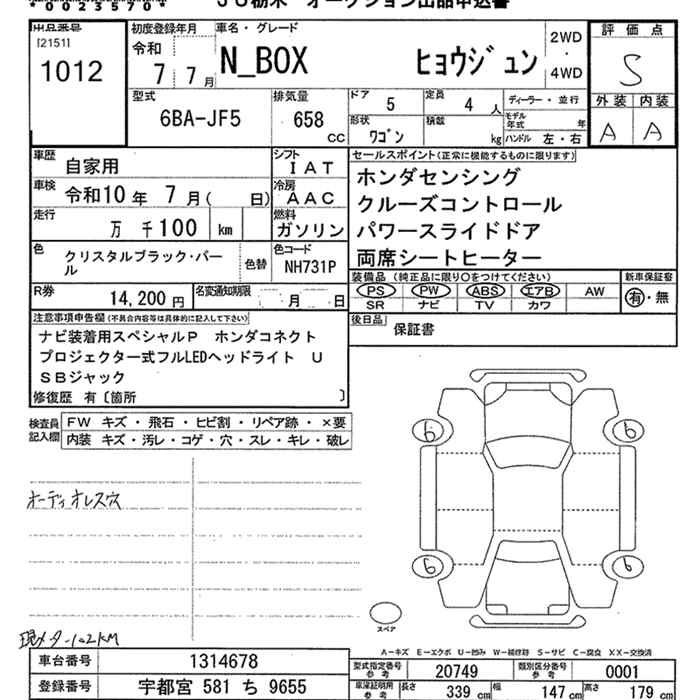 *0023570*
JU栃木 オークション出品申込書
出品番号
[2151]
1012
初度登録年月
令和
7 7月
車名・グレード
N_BOX ヒョウジュン
2WD
・
4WD
評価点
S
外装 内装
A A
型式
6BA-JF5
排気量
658
cc
ドア 5
定員 4 人
ディーラー・並行
形状 ワゴン
積載 kg
モデル年式 年
ハンドル 左・右
車歴 自家用
シフト IAT
車検 令和10年 7月( 日)
冷房 AAC
走行 万 千100 km
燃料 ガソリン
色 クリスタルブラック・パール
色替
色コード NH731P
R券 14,200 円
名変通知期限 月 日
セールスポイント(正常に機能するものに限ります)
ホンダセンシング
クルーズコントロール
パワースライドドア
両席シートヒーター
装備品 (純正品に限り○をつけてください)
PS PW ABS エアB AW
SR ナビ TV カワ
新車保証書
有・無
後日品 保証書
注意事項申告欄(不具合内容等は具体的に記入して下さい)
ナビ装着用スペシャルP ホンダコネクト
プロジェクター式フルLEDヘッドライト U
SBジャック
修復歴 有〔箇所 〕
検査員記入欄
FW キズ・飛石・ヒビ割・リペア跡・×要
内装 キズ・汚レ・コゲ・穴・スレ・キレ・破レ
オーディオレス穴
現メーター102KM
6 6
6 6
スペア
A-キズ E-エクボ U-凹み W-補修跡 S-サビ C-腐食 XX-交換済
車台番号 1314678
登録番号 宇都宮 581 ち 9655
型式指定番号 参考 20749
類別区分番号 参考 0001
車庫証明用 参考 長さ 339 cm 幅 147 cm 高さ 179 cm